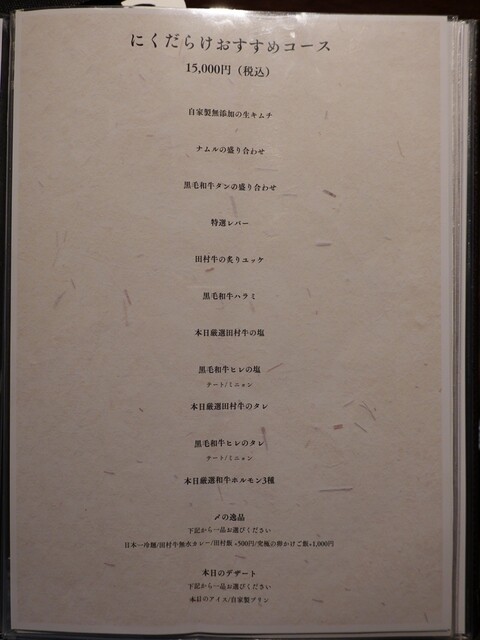 にくだらけおすすめコース
15,000円（税込）
自家製無添加の生キムチ
ナムルの盛り合わせ
黒毛和牛タンの盛り合わせ
特選レバー
田村牛の炙りユッケ
黒毛和牛ハラミ
本日厳選田村牛の塩
黒毛和牛ヒレの塩
テート/ミニョン
本日厳選田村牛のタレ
黒毛和牛ヒレのタレ
テート/ミニョン
本日厳選和牛ホルモン3種
〆の逸品
下記から一品お選びください
日本一冷麺/田村牛無水カレー/田村飯+500円/究極の卵かけご飯+1,000円
本日のデザート
下記から一品お選びください
本日のアイス/自家製プリン